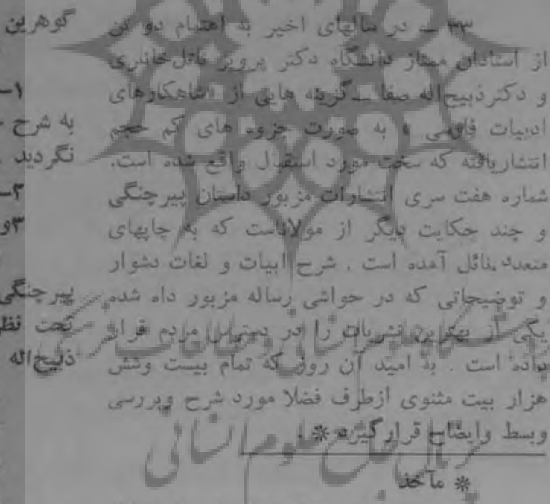 ۳۳ ــ در سالهای اخیر به اهتمام دو تن
از استادان ممتاز دانشگاه دکتر پرویز ناتل‌خانلری
و دکتر ذبیح‌اله صفا ــ گزینه هایی از «شاهکارهای
ادبیات فارسی» به صورت جزوه های کم حجم
انتشاریافته که سخت مورد استقبال واقع شده است.
شماره هفت سری انتشارات مزبور داستان پیرچنگی
و چند حکایت دیگر از مولاناست که به چاپهای
متعدد نائل آمده است . شرح ابیات و لغات دشوار
و توضیحاتی که در حواشی رساله مزبور داه شده
یکی از بهترین نشریات را در دسترس مردم قرار
داده است . به امید آن روز که تمام بیست وشش
هزار بیت مثنوی ازطرف فضلا مورد شرح وبررسی
وبسط وایضاح قرارگیرد ※ .
※ مآخذ
گوهرین
۱ــ
به شرح
نگردید .
۲ــ
۳و
پیرچنگی
تحت نظر
ذبیح‌اله
پژوهشگاه علوم انسانی و مطالعات فرهنگی
پرتال جامع علوم انسانی